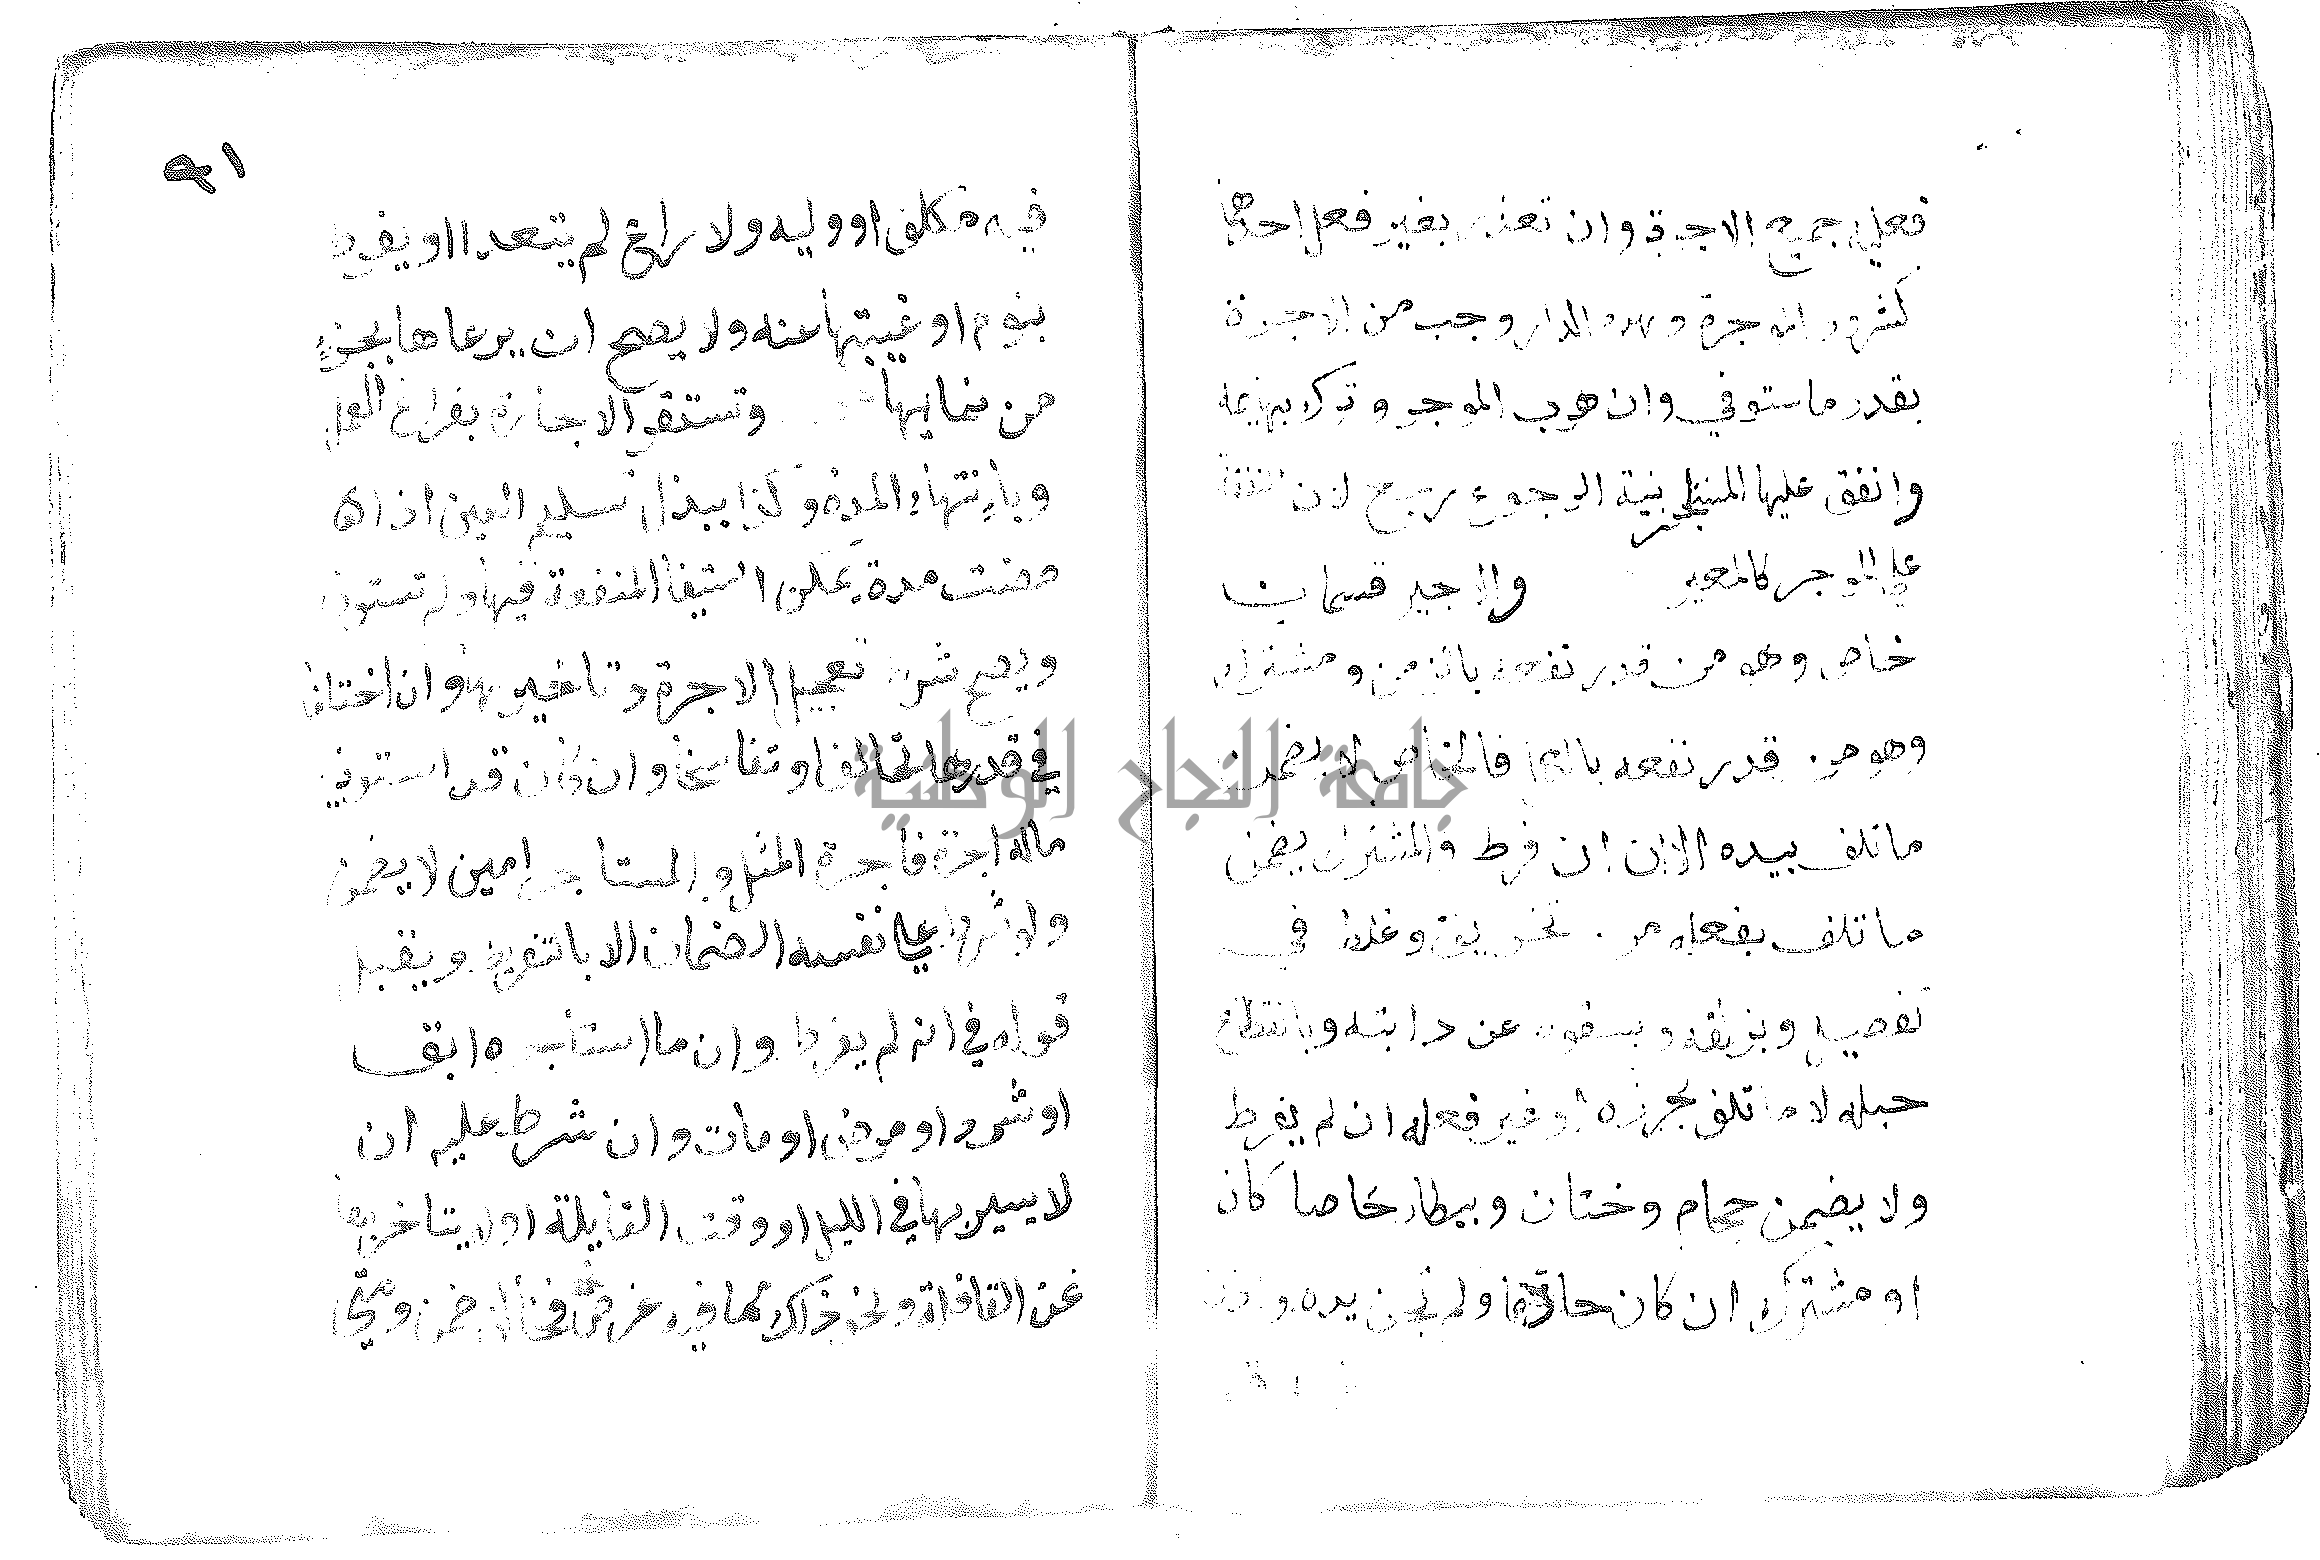 فعليه جميع الاجرة وان تعذر بغير فعل احدهما
كشرود المؤجرة وهدم الدار وجب من الاجرة
بقدر ما ستوفي وان هرب الموجر وترك بهائمه
وانفق عليها المستاجر بنية الرجوع رجع لان النفقة
على الموجر كالمعير والاجير قسمان
خاص وهو من قدر نفعه بالزمن ومشترك
وهو من قدر نفعه بالعمل فالخاص لا يضمن
ما تلف بيده الا ان فرط والمشترك يضمن
ما تلف بفعله من تخريق وغلط في
تفصيل وبزلقه وسقوط عن دابته وبانقطاع
حبله لا ما تلف بحرزه او غير فعله ان لم يفرط
ولا يضمن حجام وختان وبيطار خاصا كان
او مشترك ان كان حاذقا ولم تجن يده واذن
٩١
فيه مكلف او وليه ولا راع لم يتعدا او يفرط
بنوم او غيبتها عنه ولا يصح ان يرعاها بجزء
من نمايها وتستقر الاجارة بفراغ العمل
وبانتهاء المدة وكذا ببذل تسليم العين اذا
مضت مدة يمكن استيفا المنفعة فيها ولم تستوف
ويصح شرط تعجيل الاجرة وتاخيرها وان اختلفا
في قدرها تحالفا وتفاسخا وان كان قد استوفي
ماله اجرة فاجرة المثل والمستاجر امين لا يضمن
ولو شرط على نفسه الضمان الا بالتفريط ويقبل
قوله في انه لم يفرط وان ما استاجره ابق
او شرد او مرض او مات وان شرط عليه ان
لا يسير بها في الليل او وقت القايلة او لا يتاخر بها
عن القافلة ونحو ذاك مما فيه غرض فخالف ضمن ومتى
جامعة النجاح الوطنية